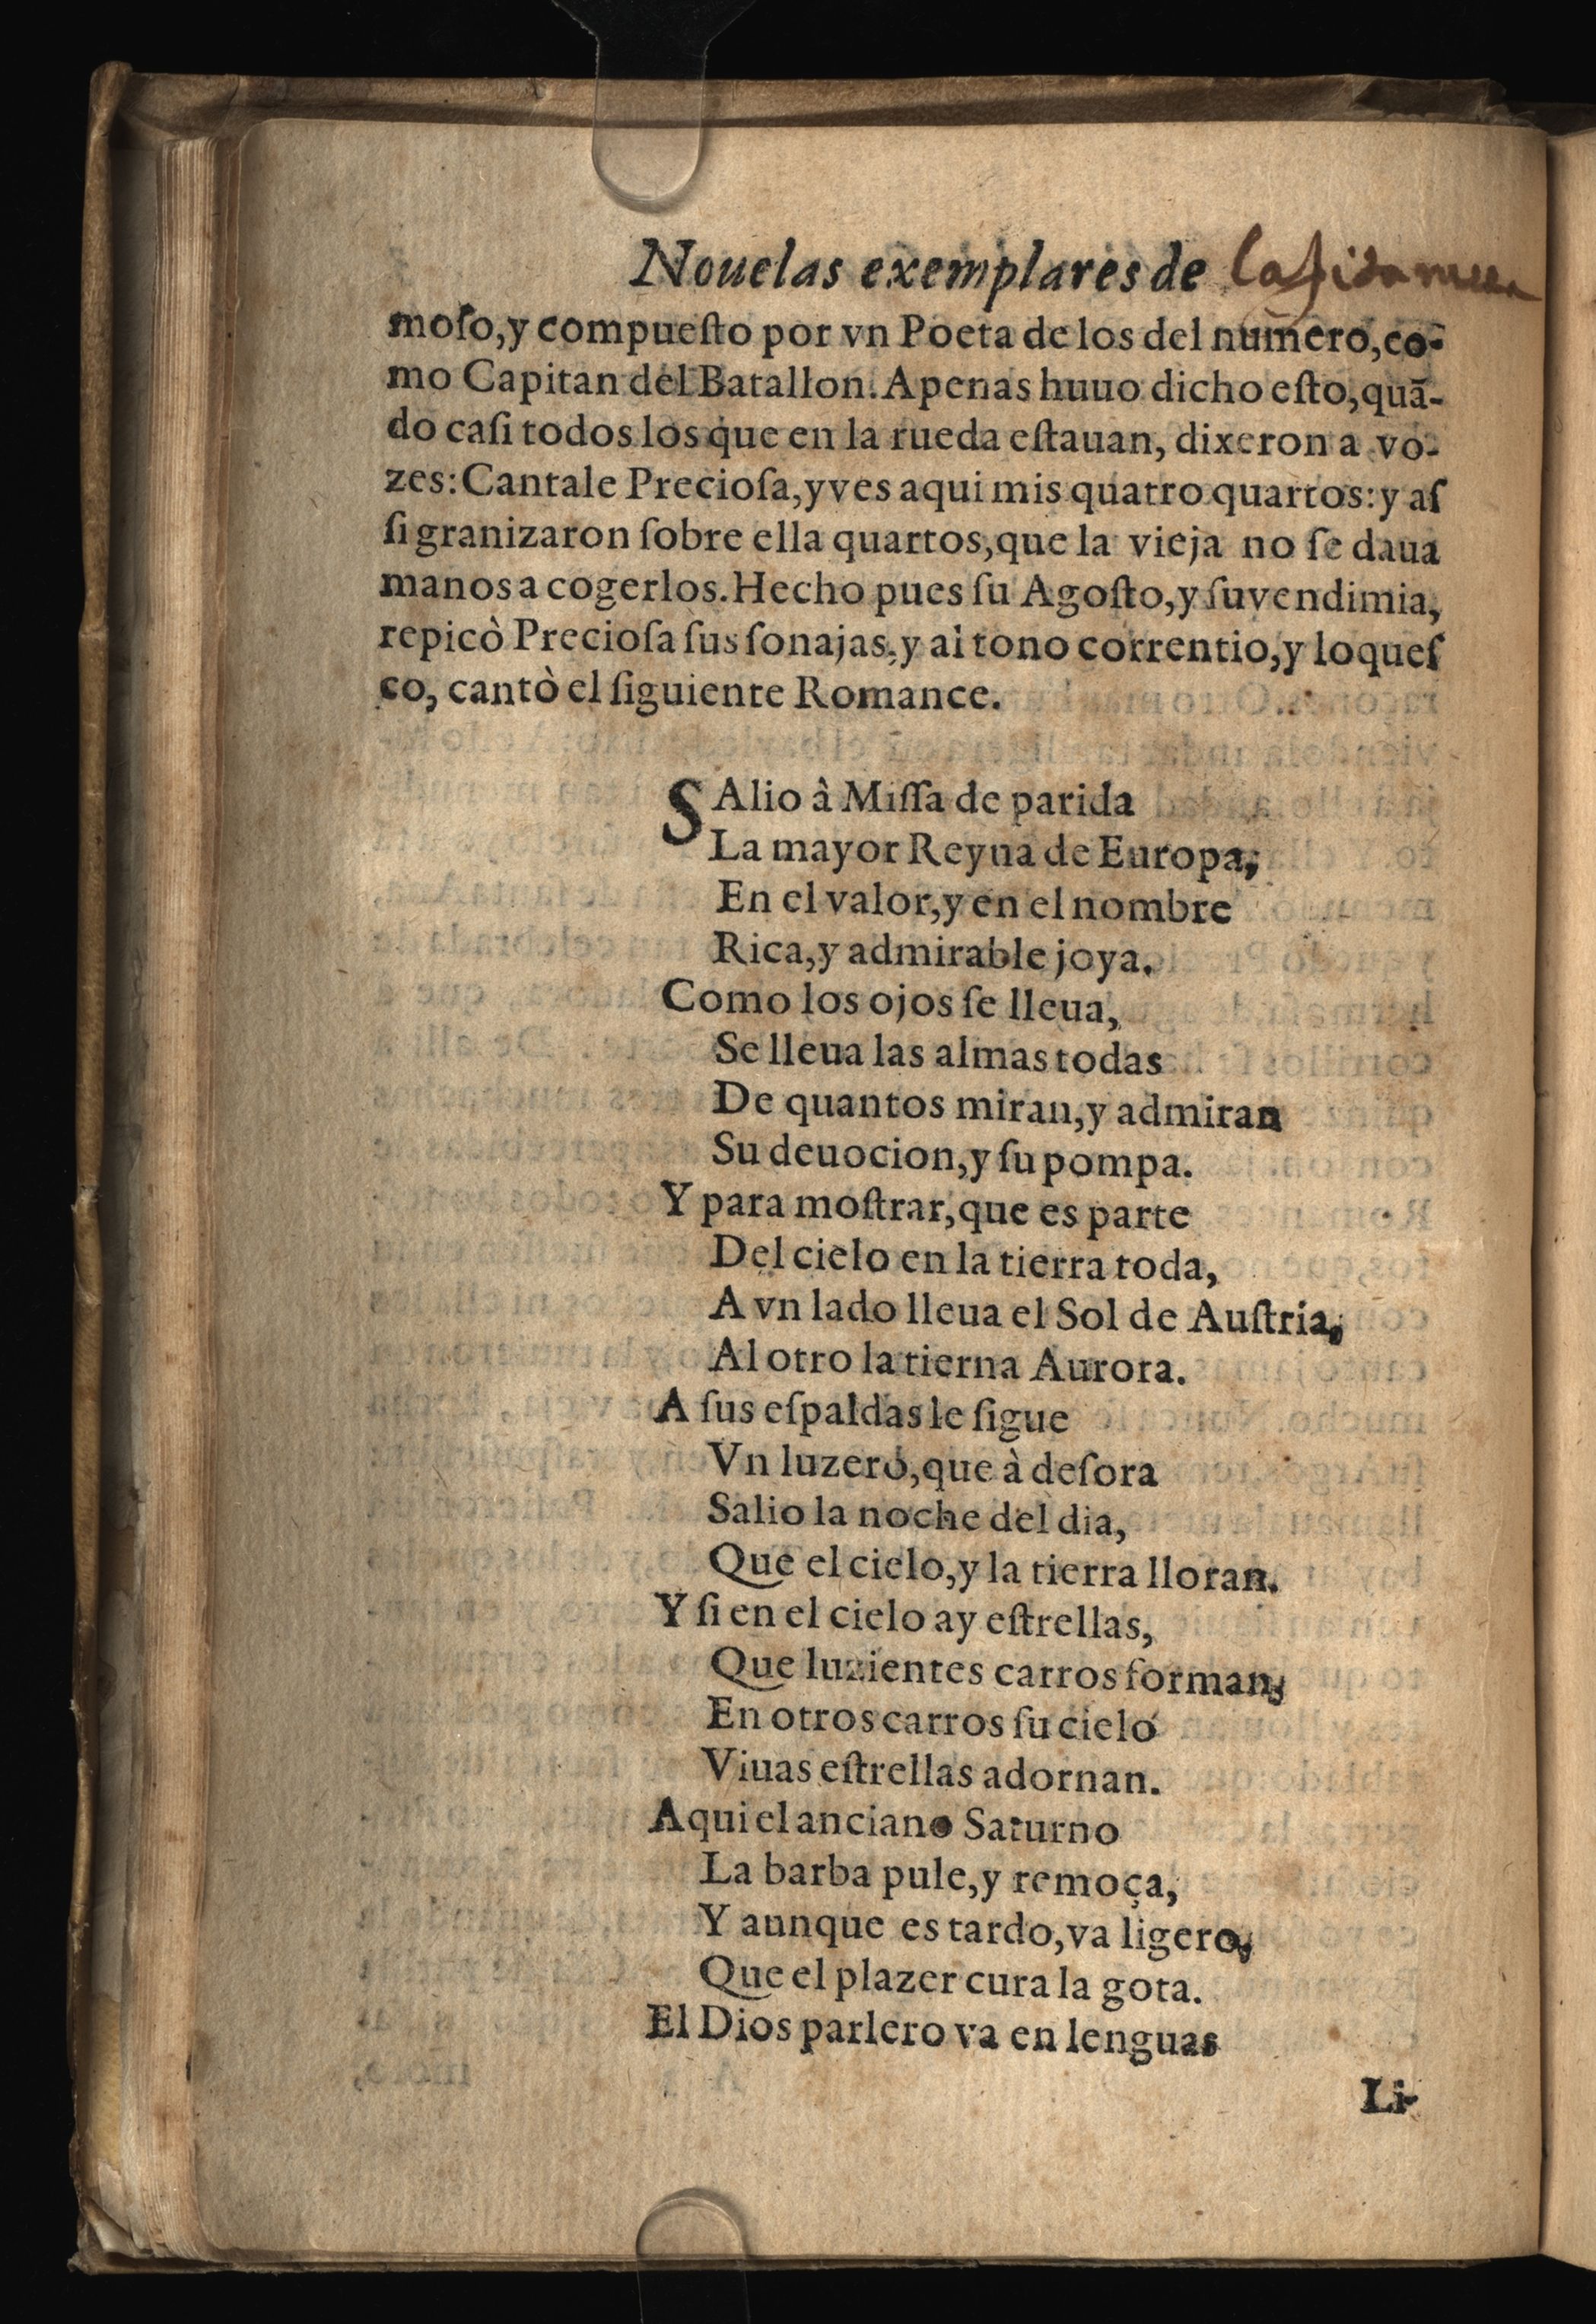 Nouelas exemplares de
moſo,y compueſto por vn Poeta de los del numero,co-
mo Capitan del Batallon.Apenas huuo dicho eſto,quã-
do caſi todos los que en la rueda eſtauan, dixeron a vo-
zes:Cantale Precioſa,y ves aqui mis quatro quartos:y aſ
ſi granizaron ſobre ella quartos,que la vieja no ſe daua
manos a cogerlos.Hecho pues ſu Agoſto,y ſu vendimia,
repicò Precioſa ſus ſonajas,y al tono correntio,y loqueſ
co, cantò el ſiguiente Romance.
SAlio â Miſſa de parida
La mayor Reyna de Europa,
En el valor,y en el nombre
Rica,y admirable joya.
Como los ojos ſe lleua,
Se lleua las almas todas
De quantos miran,y admiran
Su deuocion,y ſu pompa.
Y para moſtrar,que es parte
Del cielo en la tierra toda,
A vn lado lleua el Sol de Auſtria,
Al otro la tierna Aurora.
A ſus eſpaldas le ſigue
Vn luzero,que à deſora
Salio la noche del dia,
Que el cielo,y la tierra lloran.
Y ſi en el cielo ay eſtrellas,
Que luzientes carros forman,
En otros carros ſu cielo
Viuas eſtrellas adornan.
Aqui el anciano Saturno
La barba pule,y remoça,
Y aunque es tardo,va ligero,
Que el plazer cura la gota.
El Dios parlero va en lenguas
Li-